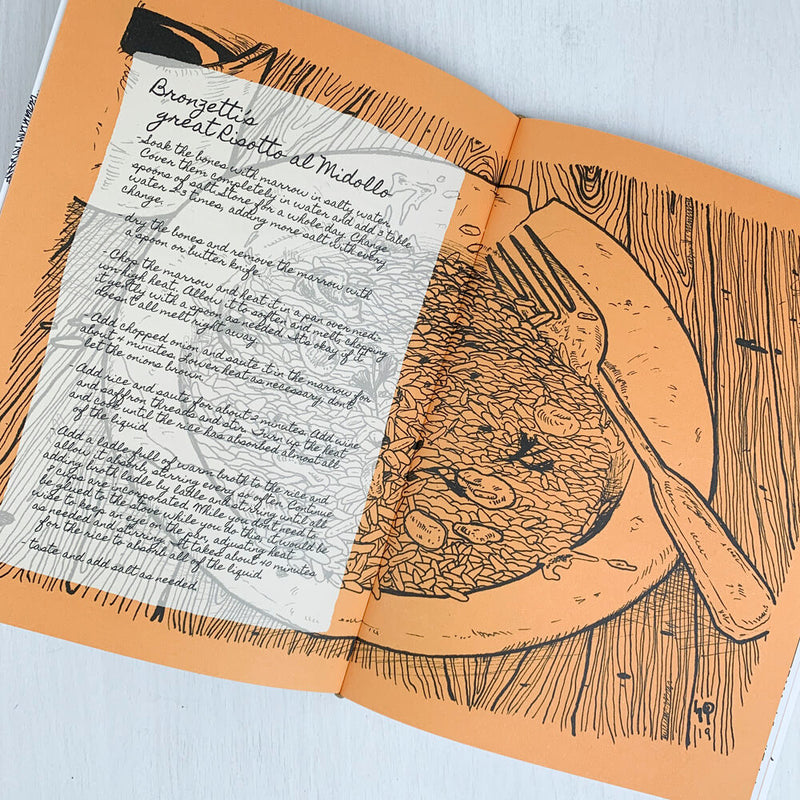 Bronzetti's
great Risotto al Midollo
- Soak the bones with marrow in salty water.
Cover them completely in water and add 3 table
spoons of salt. Store for a whole day. Change
water 2-3 times, adding more salt with every
change.
- dry the bones and remove the marrow with
a spoon or butter knife.
- Chop the marrow and heat it in a pan over medi-
um-high heat. Allow it to soften and melt, chopping
it gently with a spoon as needed. It's okay if it
doesn't all melt right away.
- Add chopped onion and saute it in the marrow for
about 4 minutes. Lower heat as necessary, don't
let the onions brown.
- Add rice and saute for about 2 minutes. Add wine
and saffron threads and stir. Turn up the heat
and cook until the rice has absorbed almost all
of the liquid.
- Add a ladle full of warm broth to the rice and
allow it absorb, stirring every so often. Continue
adding broth ladle by ladle and stirring until all
8 cups are incorporated. While you don't need to
be glued to the stove while you do this, it would be
wise to keep an eye on the pan, adjusting heat
as needed and stirring. It takes about 40 minutes
for the rice to absorb all of the liquid.
- taste and add salt as needed.
19